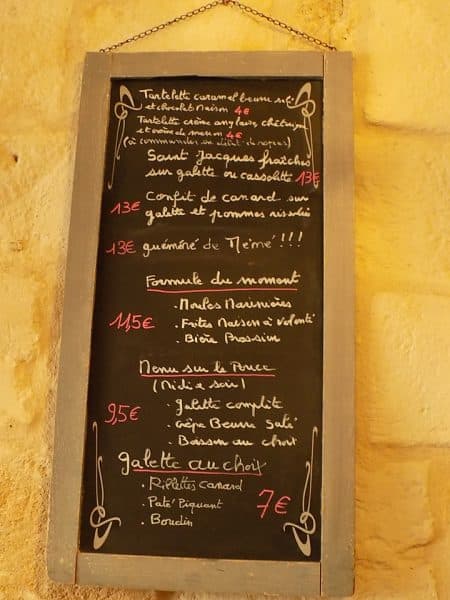 Tartelette caramel beurre salé
et chocolat Maison 4€
Tartelette crème anglaise, châtaigne
et crème de marron 4€
(à commander en début de repas)
Saint Jacques fraîches
sur galette ou cassolette 13€
13€ Confit de canard sur
galette et pommes rissolées
13€ guéméné de Mémé !!!
Formule du moment
. Moules Marinières
11,5€ . Frites Maison à volonté
. Bière Pression
Menu sur le Pouce
(Midi & soir)
9,5€ . galette complète
. crêpe Beurre Salé
. Boisson au choix
galette au choix
. Rillettes Canard
. Paté Piquant 7€
. Boudin